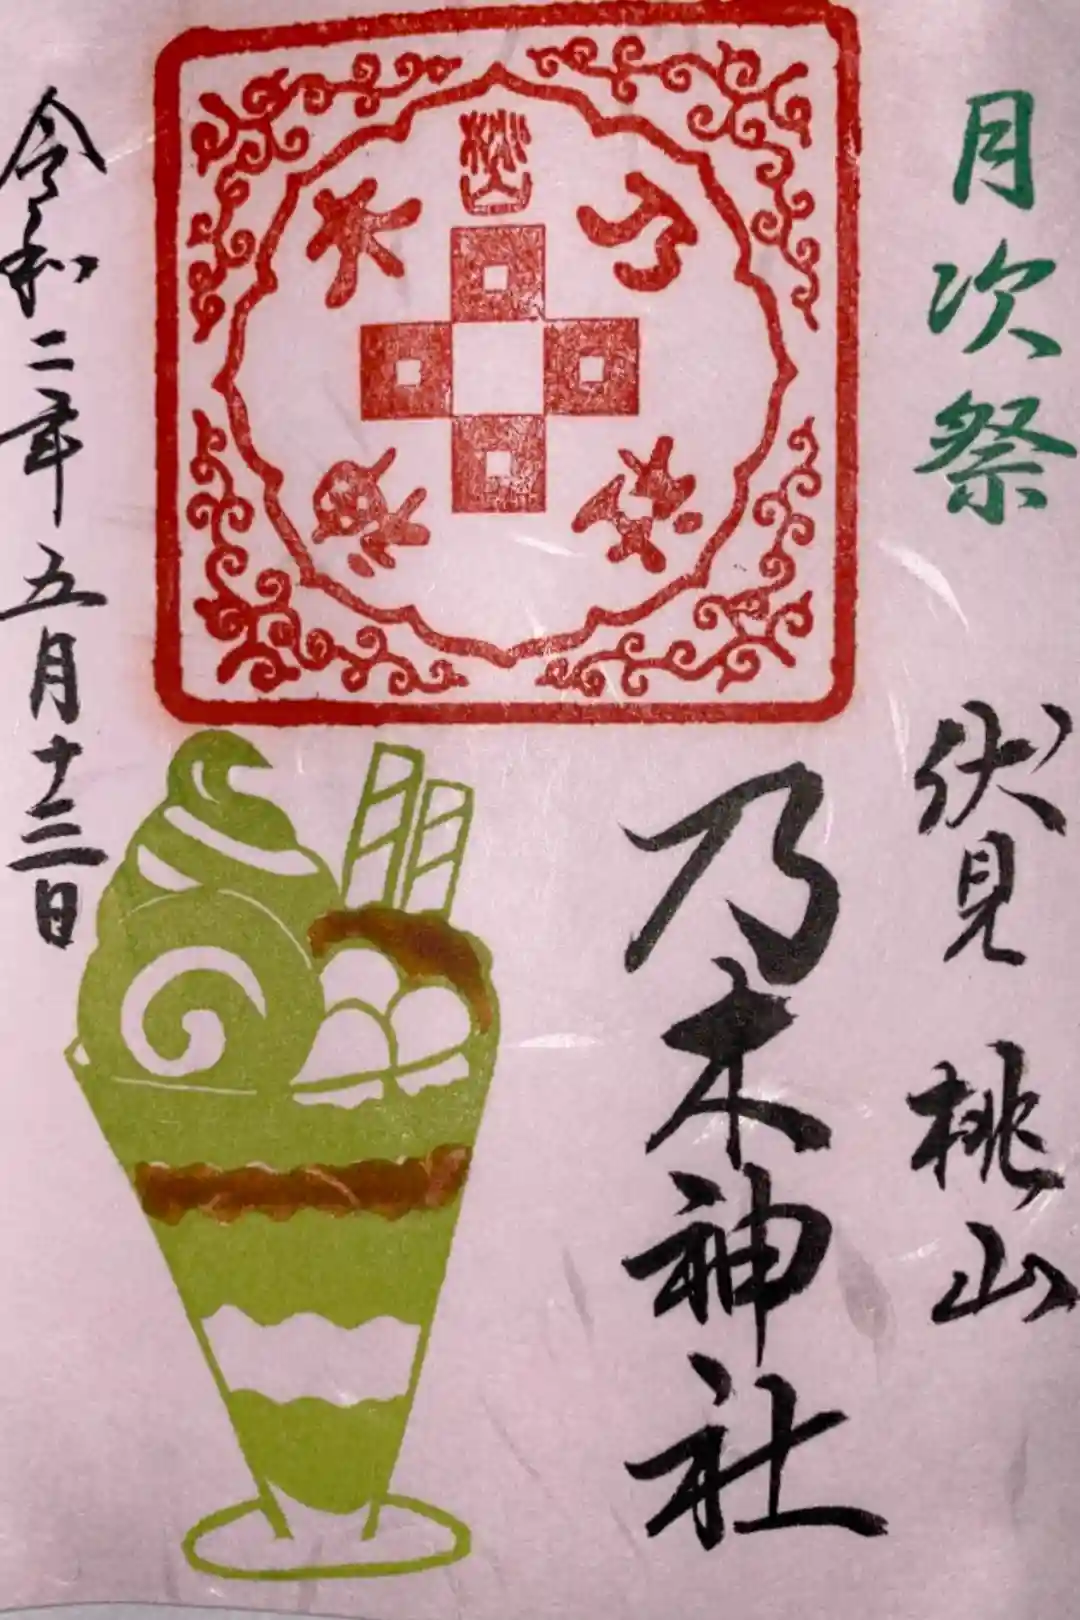 月次祭
伏見 桃山
乃木神社
桃山
乃木
令和二年五月十三日